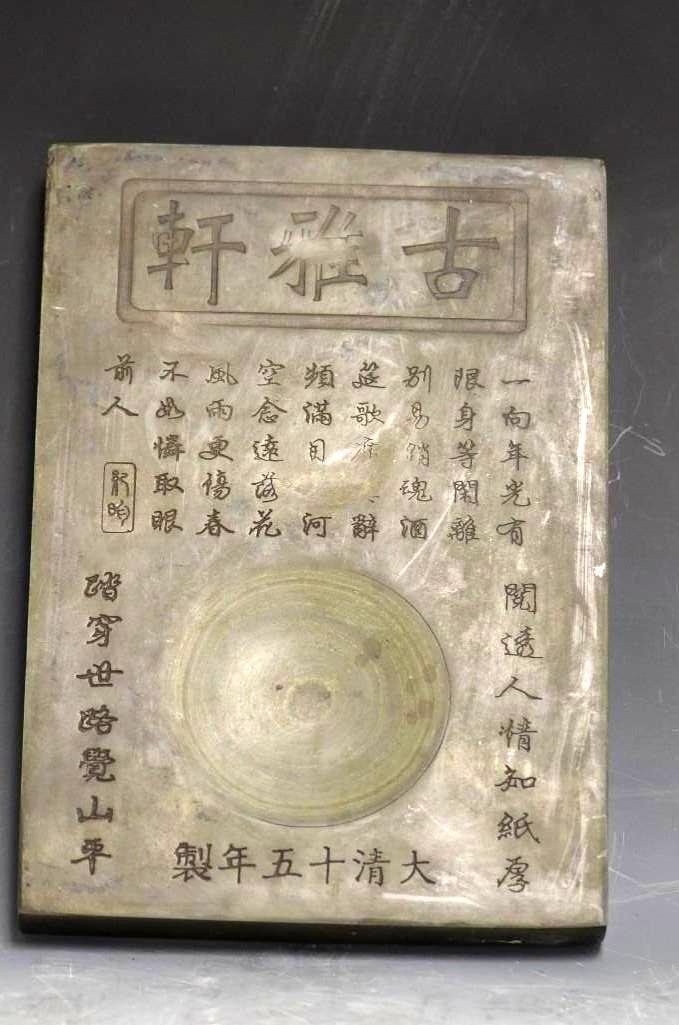 古雅軒
一向年光有
限身等閑離
別易銷魂酒
筵歌席辭
頻滿目河
空念遠落花
風雨更傷春
不如憐取眼
前人
紀昀
閱透人情知紙厚
踏穿世路覺山平
大清十五年製